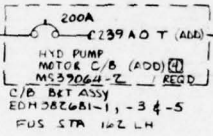 200A
C239A0T (ADD)
HYD PUMP
MOTOR C/B (ADD) 4
MS39064-2 1 REQD
C/B BKT ASSY
EDH382681-1, -3 & -5
FUS STA 162 LH